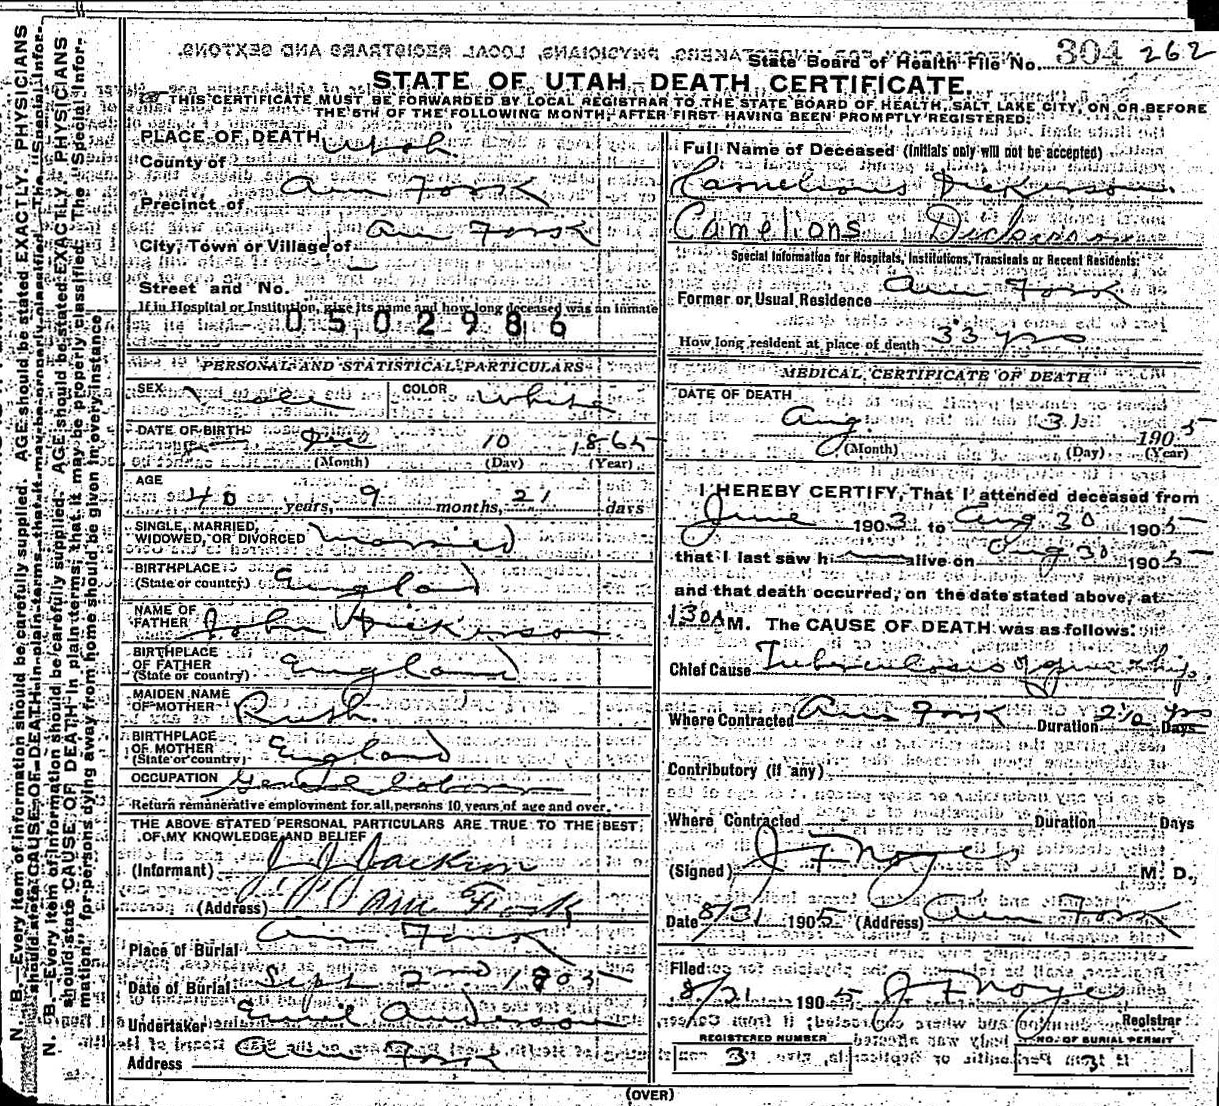 State Board of Health File No. 304 262
STATE OF UTAH—DEATH CERTIFICATE.
THIS CERTIFICATE MUST BE FORWARDED BY LOCAL REGISTRAR TO THE STATE BOARD OF HEALTH, SALT LAKE CITY, ON OR BEFORE
THE 5TH OF THE FOLLOWING MONTH, AFTER FIRST HAVING BEEN PROMPTLY REGISTERED.
PLACE OF DEATH
County of Utah
Precinct of Am Fork
City, Town or Village of Am Fork
Street and No. —
If in Hospital or Institution, give its name and how long deceased was an inmate
0502986
PERSONAL AND STATISTICAL PARTICULARS
SEX Male COLOR White
DATE OF BIRTH 10 1865
(Month) (Day) (Year)
AGE
40 years, 9 months, 21 days
SINGLE, MARRIED,
WIDOWED, OR DIVORCED Married
BIRTHPLACE
(State or country) England
NAME OF
FATHER John Dickerson
BIRTHPLACE
OF FATHER
(State or country) England
MAIDEN NAME
OF MOTHER Rush
BIRTHPLACE
OF MOTHER
(State or country) England
OCCUPATION General labor
Return remunerative employment for all persons 10 years of age and over.
THE ABOVE STATED PERSONAL PARTICULARS ARE TRUE TO THE BEST
OF MY KNOWLEDGE AND BELIEF
(Informant) J. J. Jackson
(Address) Am Fork
Place of Burial Am Fork
Date of Burial Sept 2nd 1905
Undertaker Emil Anderson
Address Am Fork
Full Name of Deceased (Initials only will not be accepted)
Camelions Dickerson
Camelions Dickerson
Special Information for Hospitals, Institutions, Transients or Recent Residents:
Former or Usual Residence Am Fork
How long resident at place of death 33 yrs
MEDICAL CERTIFICATE OF DEATH
DATE OF DEATH
Aug 31 1905
(Month) (Day) (Year)
I HEREBY CERTIFY, That I attended deceased from
June 1903 to Aug 30 1905
that I last saw h alive on Aug 30 1905
and that death occurred, on the date stated above, at
130 A M. The CAUSE OF DEATH was as follows:
Chief Cause Tuberculosis of
Where Contracted Am Fork Duration 2½ yrs Days
Contributory (if any)
Where Contracted Duration Days
(Signed) J F Noyes M. D.
Date 8/31 1905 (Address) Am Fork
Filed
8/31 1905 J F Noyes
Registrar
REGISTERED NUMBER
3
NO. OF BURIAL PERMIT
3
(OVER)
N. B.—Every item of information should be carefully supplied. AGE should be stated EXACTLY. PHYSICIANS
should state CAUSE OF DEATH in plain terms, that it may be properly classified. The "Special Infor-
N. B.—Every item of information should be carefully supplied. AGE should be stated EXACTLY. PHYSICIANS
should state CAUSE OF DEATH in plain terms, that it may be properly classified. The "Special Infor-
mation" for persons dying away from home should be given in every instance.